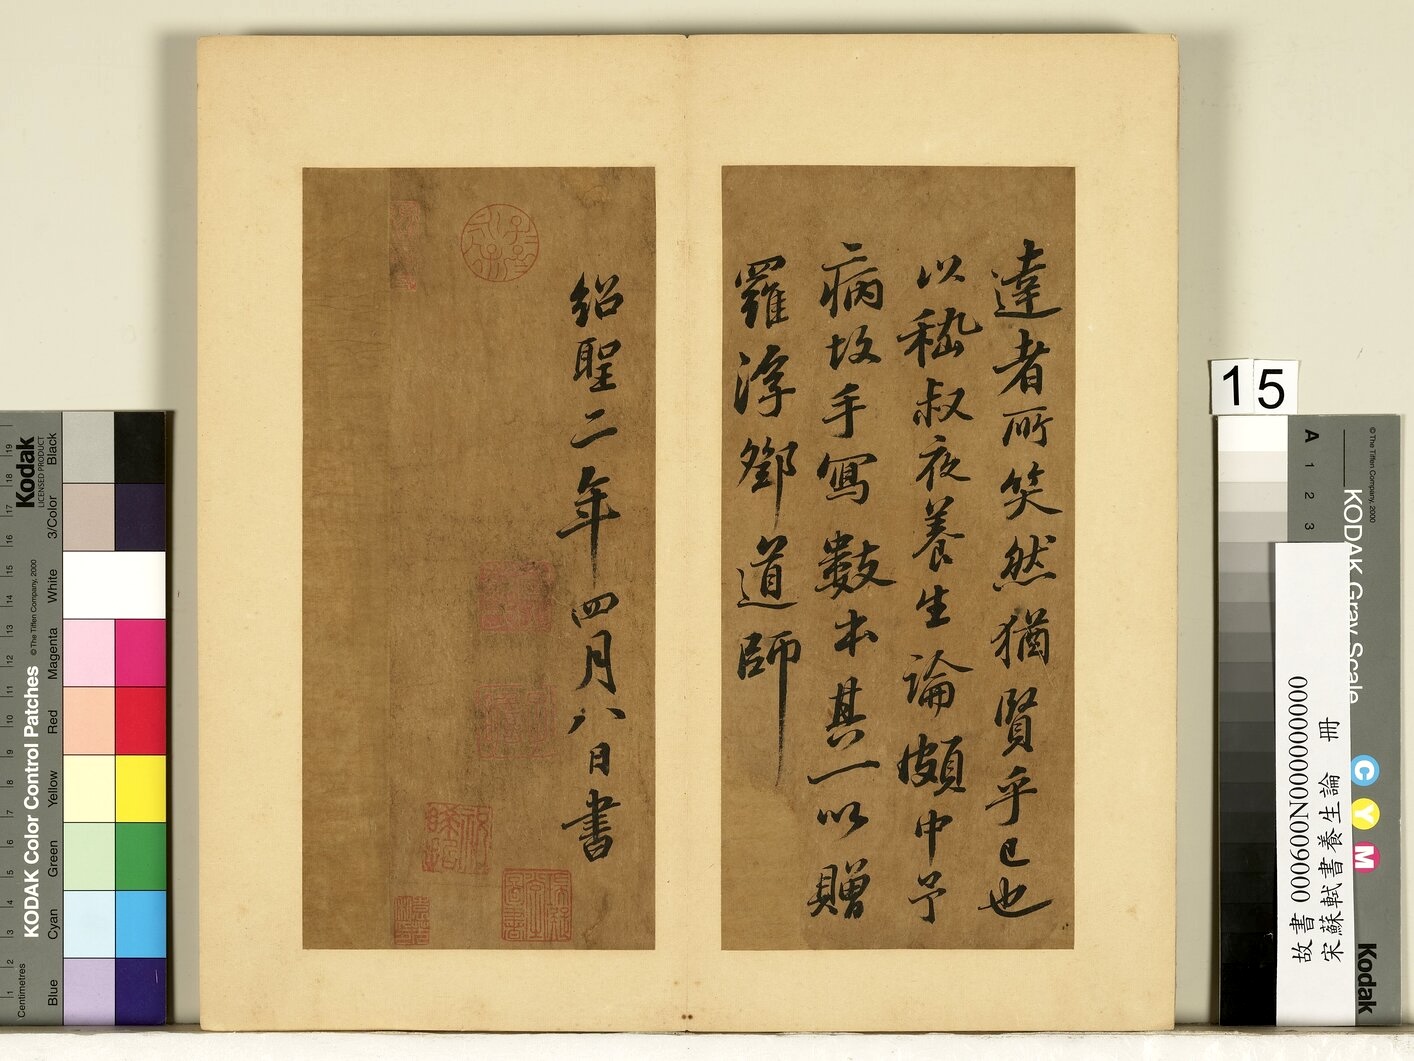 達者所笑然猶賢乎已也
以嵇叔夜養生論頗中予
病故手寫數本其一以贈
羅浮鄧道師
紹聖二年四月八日書
15
故書 000600N000000000
宋蘇軾書養生論 冊
Kodak
LICENSED PRODUCT
KODAK Color Control Patches
© The Tiffen Company, 2000
Centimetres
1 2 3 4 5 6 7 8 9 10 11 12 13 14 15 16 17 18 19
Blue
Cyan
Green
Yellow
Red
Magenta
White
3/Color
Black
KODAK Gray Scale
© The Tiffen Company, 2000
A 1 2 3
C Y M
Kodak